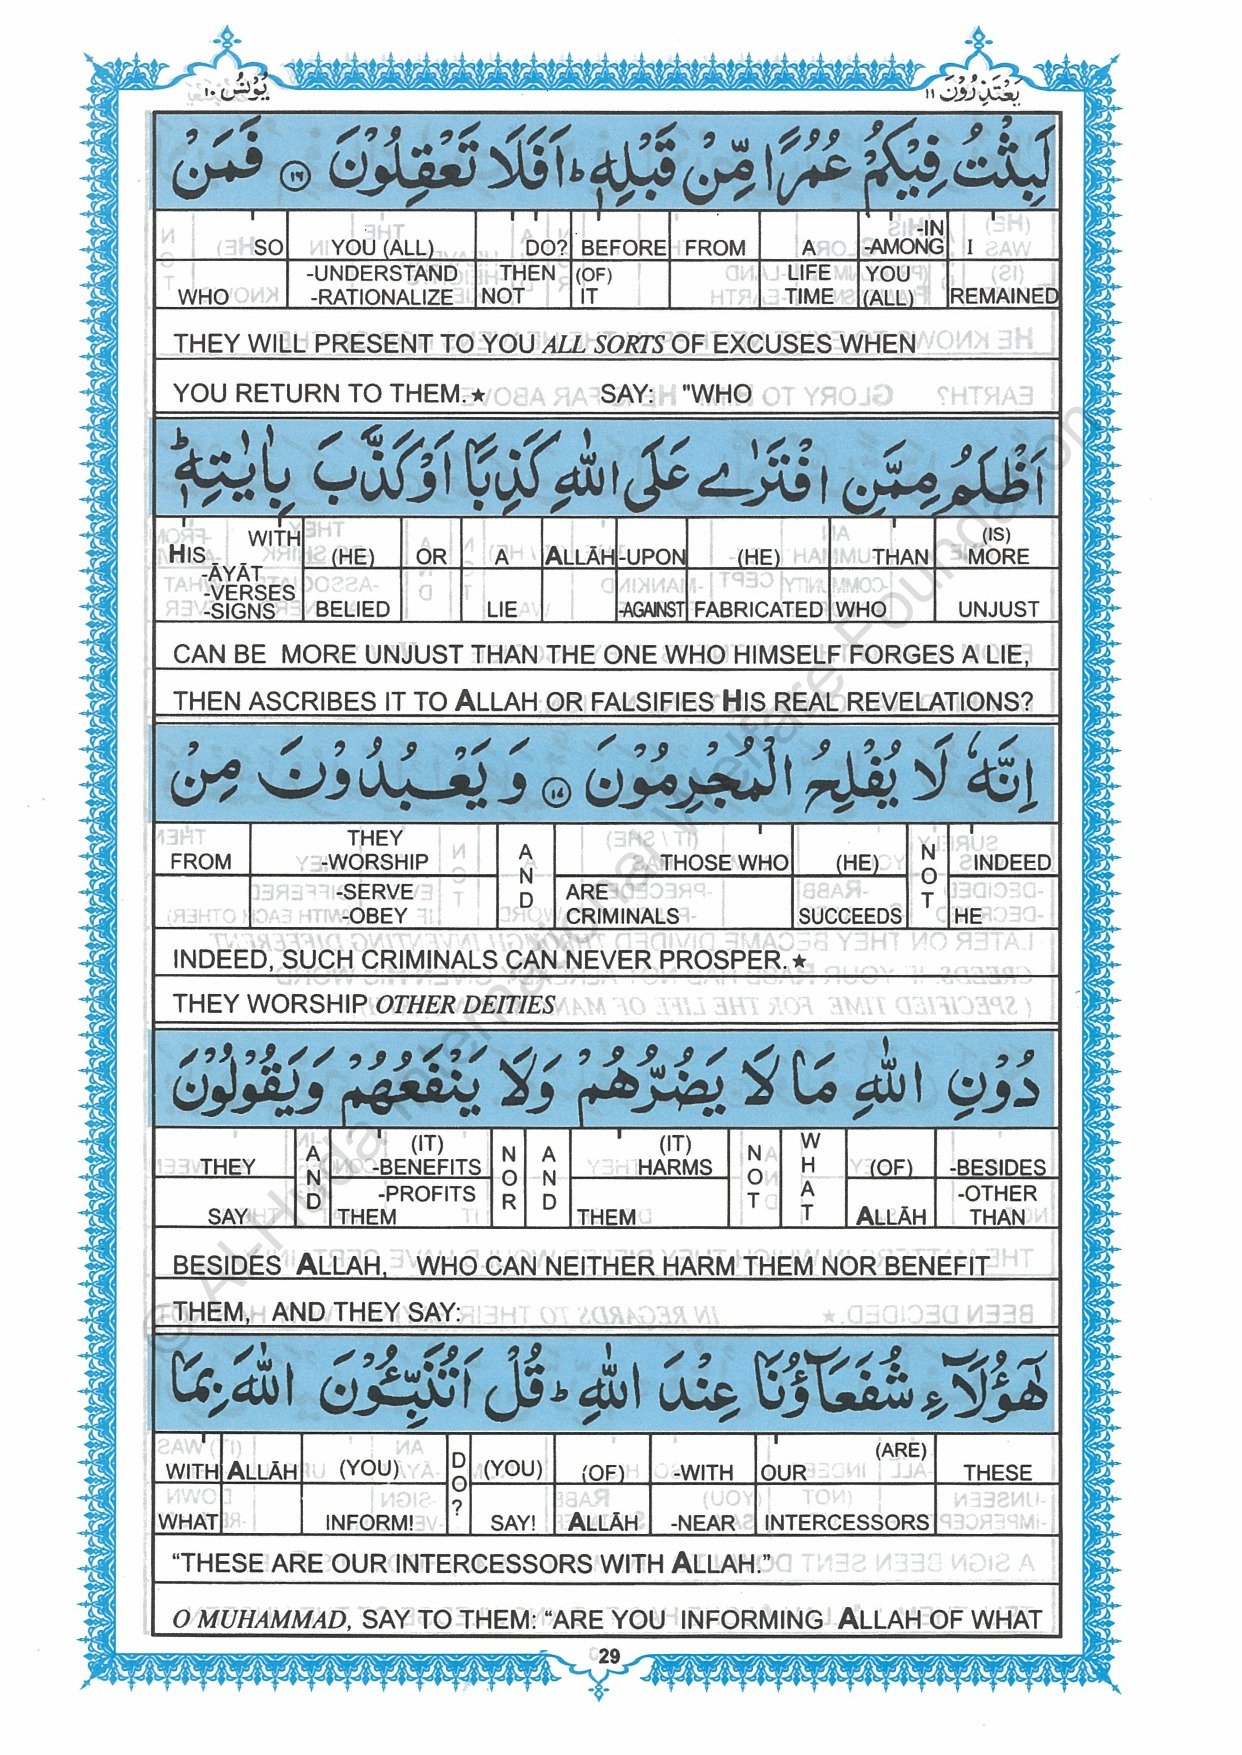 يَعْتَذِرُوْنَ ١١
يُوْنُسُ ١٠
لَبِثْتُ فِيْكُمْ عُمُرًا مِّنْ قَبْلِهٖ ؕ اَفَلَا تَعْقِلُوْنَ ١٦ فَمَنْ
SO YOU (ALL) DO? BEFORE FROM A -IN -AMONG I
WHO -UNDERSTAND -RATIONALIZE THEN NOT (OF) IT LIFE TIME YOU (ALL) REMAINED
THEY WILL PRESENT TO YOU ALL SORTS OF EXCUSES WHEN
YOU RETURN TO THEM.★ SAY: "WHO
اَظْلَمُ مِمَّنِ افْتَرٰے عَلَى اللّٰهِ كَذِبًا اَوْ كَذَّبَ بِاٰيٰتِهٖ ؕ
HIS WITH (HE) OR A ALLĀH -UPON (HE) THAN (IS) MORE
-ĀYĀT -VERSES -SIGNS BELIED LIE -AGAINST FABRICATED WHO UNJUST
CAN BE MORE UNJUST THAN THE ONE WHO HIMSELF FORGES A LIE,
THEN ASCRIBES IT TO ALLAH OR FALSIFIES HIS REAL REVELATIONS?
اِنَّهٗ لَا يُفْلِحُ الْمُجْرِمُوْنَ ١٧ وَيَعْبُدُوْنَ مِنْ
FROM THEY -WORSHIP AND THOSE WHO (HE) NOT INDEED
-SERVE/ -OBEY ARE CRIMINALS SUCCEEDS HE
INDEED, SUCH CRIMINALS CAN NEVER PROSPER.★
THEY WORSHIP OTHER DEITIES
دُوْنِ اللّٰهِ مَا لَا يَضُرُّهُمْ وَلَا يَنْفَعُهُمْ وَيَقُوْلُوْنَ
THEY AND (IT) -BENEFITS NOR AND (IT) HARMS NOT WHAT (OF) -BESIDES
SAY -PROFITS THEM THEM ALLĀH -OTHER THAN
BESIDES ALLAH, WHO CAN NEITHER HARM THEM NOR BENEFIT
THEM, AND THEY SAY:
هٰٓؤُلَآءِ شُفَعَآؤُنَا عِنْدَ اللّٰهِ ؕ قُلْ اَتُنَبِّـُٔوْنَ اللّٰهَ بِمَا
WITH ALLĀH (YOU) DO? (YOU) (OF) -WITH OUR (ARE) THESE
WHAT INFORM! SAY! ALLĀH -NEAR INTERCESSORS
“THESE ARE OUR INTERCESSORS WITH ALLAH.”
O MUHAMMAD, SAY TO THEM: “ARE YOU INFORMING ALLAH OF WHAT
29
© AL-Huda International Welfare Foundation